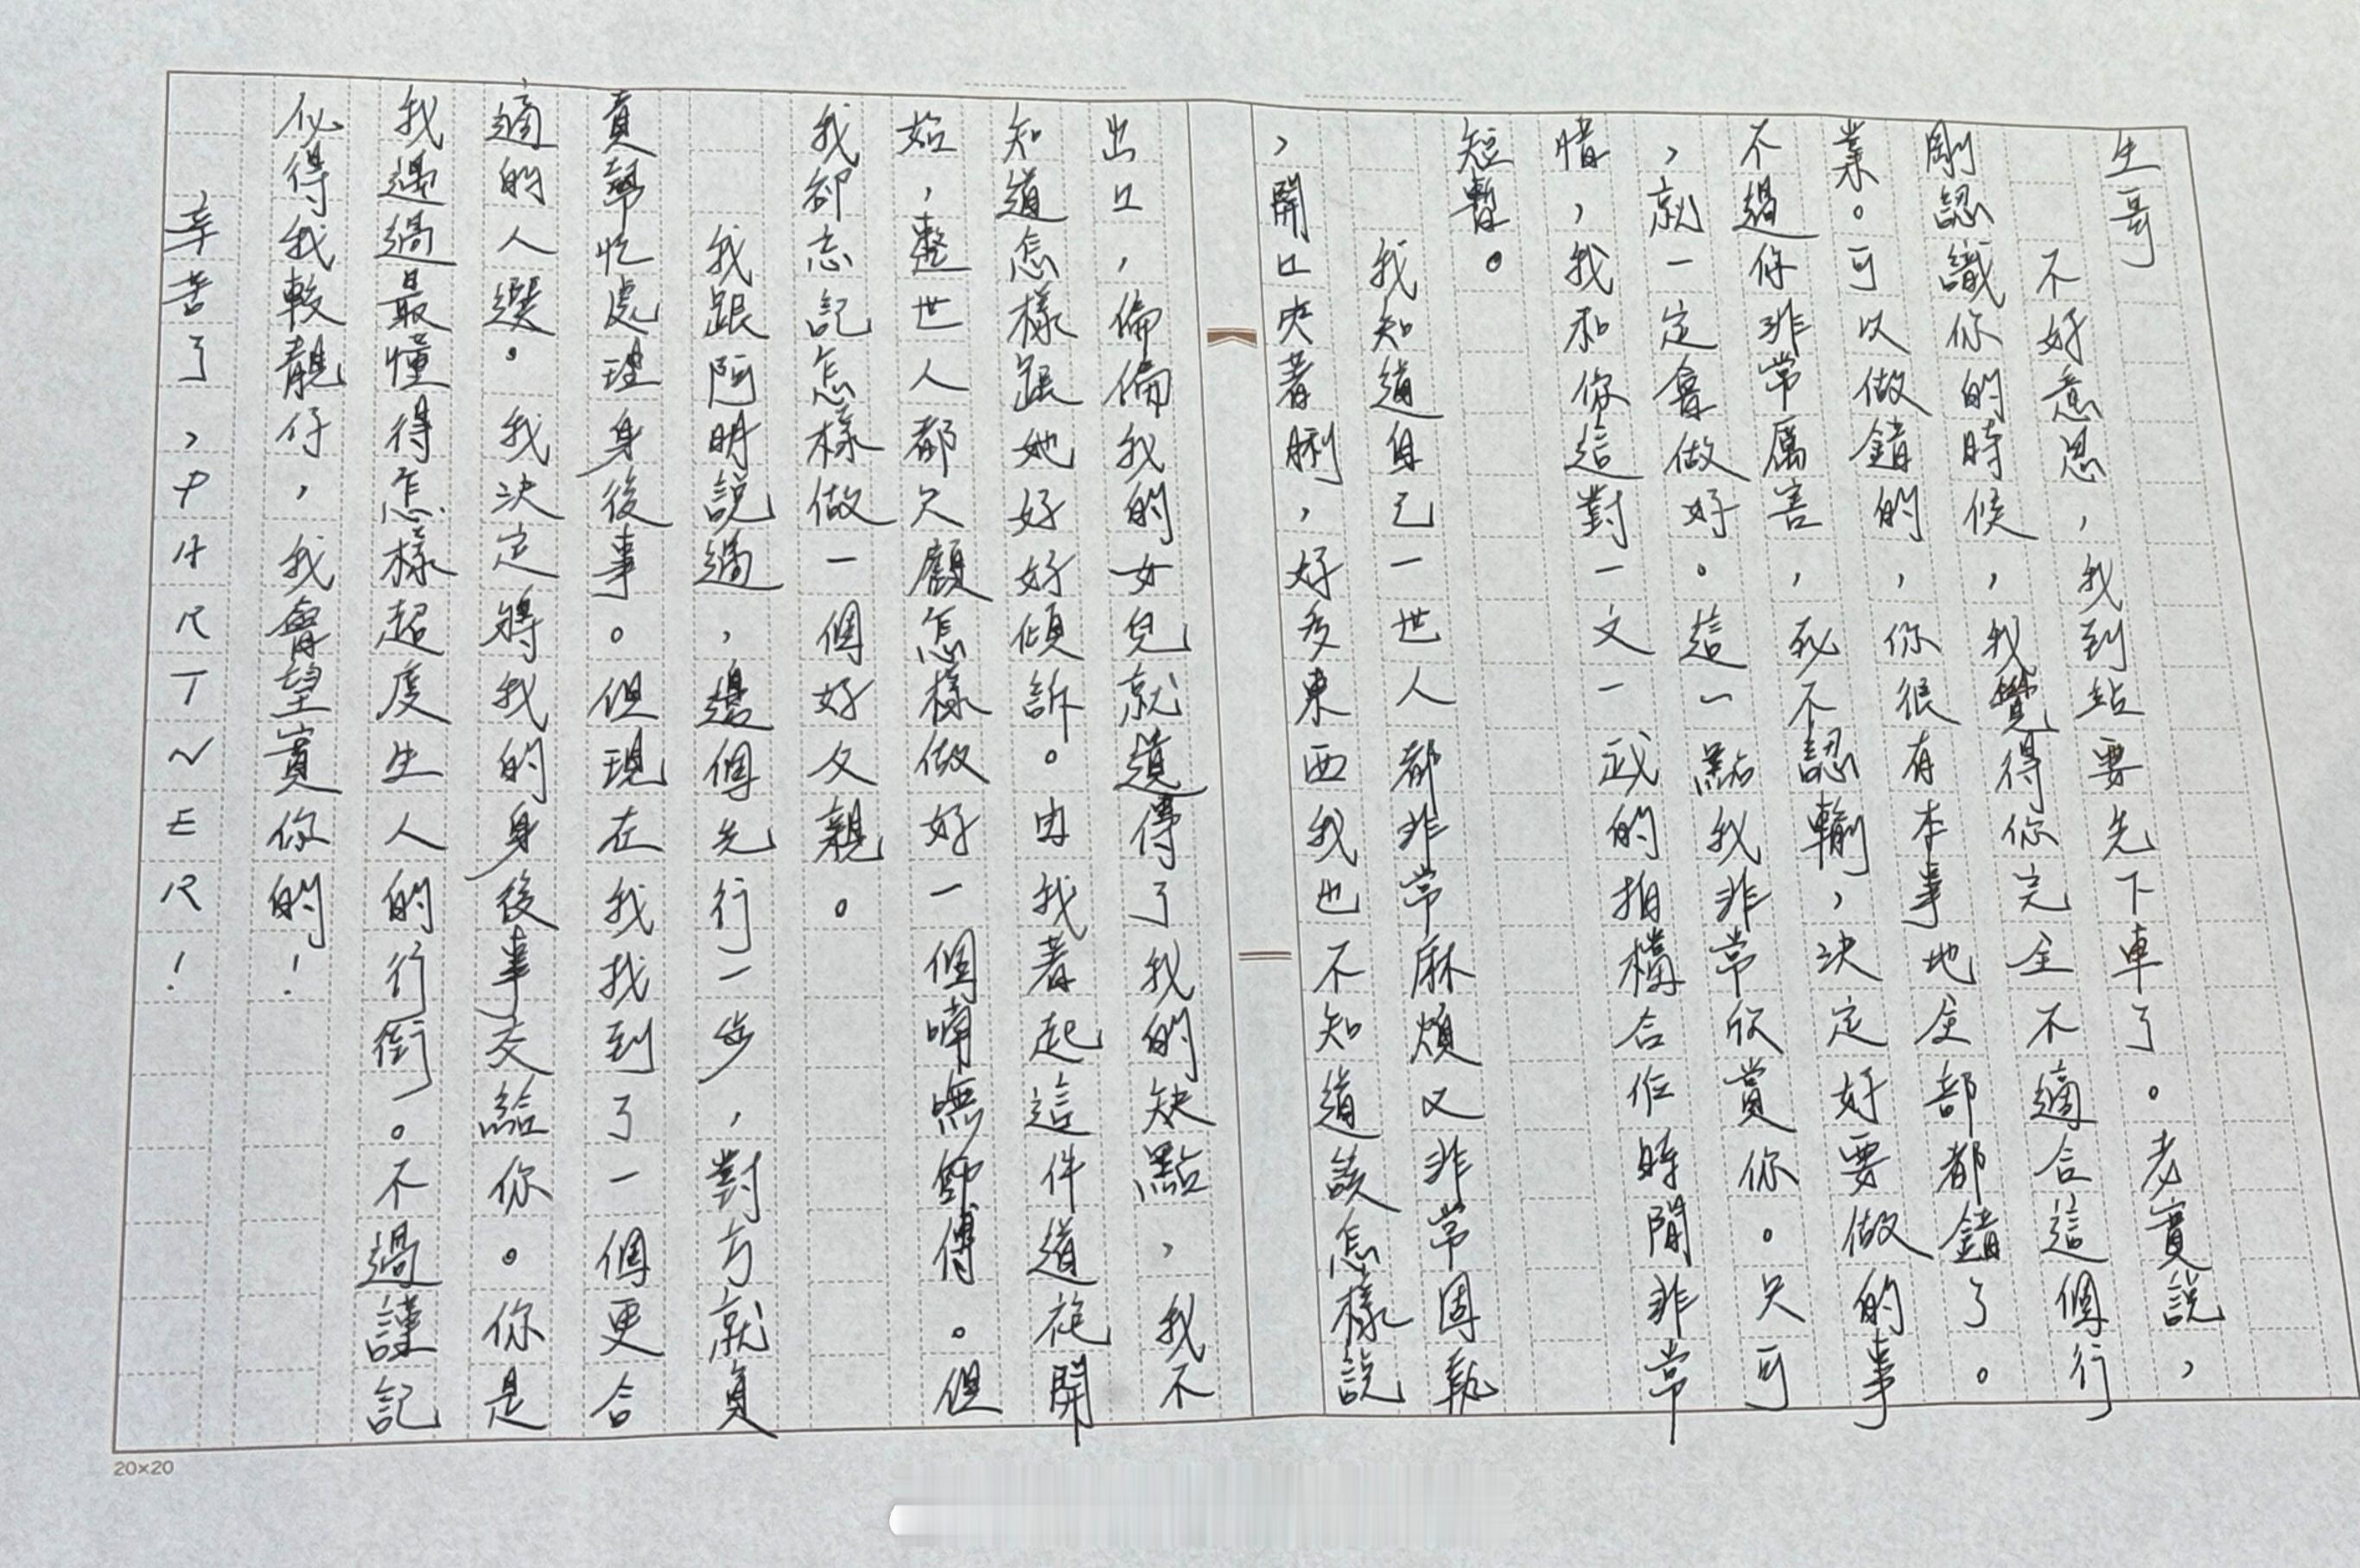 生哥
不好意思，我到站要先下車了。老實說，
剛認識你的時候，我覺得你完全不適合這個行
業。可以做錯的，你很有本事地全部都錯了。
不過你非常厲害，死不認輸，決定好要做的事
，就一定會做好。這一點我非常欣賞你。只可
惜，我和你這對一文一武的拍檔合作時間非常
短暫。
我知道自己一世人都非常麻煩又非常固執
，開口夾着脷，好多東西我也不知道該怎樣說
出口，偏偏我的女兒就遺傳了我的缺點，我不
知道怎樣跟她好好傾訴。由我着起這件道袍開
始，整世人都只顧怎樣做好一個喃嘸師傅。但
我卻忘記怎樣做一個好父親。
我跟阿明說過，邊個先行一步，對方就負
責幫忙處理身後事。但現在我找到了一個更合
適的人選。我決定將我的身後事交給你。你是
我遇過最懂得怎樣超度生人的行街。不過謹記
化得我較靚仔，我會望實你的！
辛苦了，PARTNER！
20×20